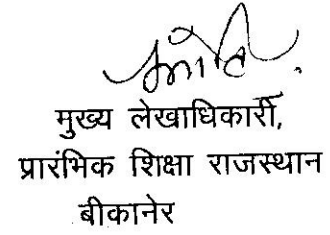 मुख्य लेखाधिकारी,
प्रारंभिक शिक्षा राजस्थान
बीकानेर